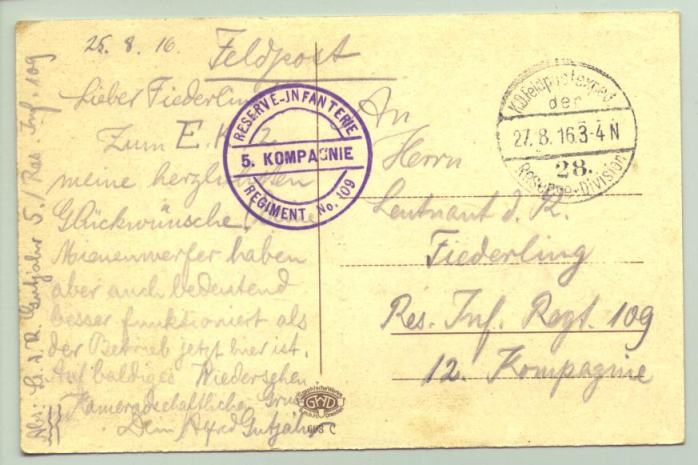 25. 8. 16
Feldpost
Lieber Fiederling
Zum E. K. 2
meine herzlichsten
Glückwünsche.
Mienenwerfer haben
aber auch bedeutend
besser funktioniert als
der Betrieb jetzt hier ist.
Auf baldiges Wiedersehen
Kameradschaftlichen Gruß
Dein Alfred Gutjahr
Abs. Lt. d. R. Gutjahr 5./Res. Inf. 109
RESERVE-INFANTERIE
5. KOMPAGNIE
REGIMENT No. 109
K.D. Feldpostexped.
der
27. 8. 16 3-4 N
28.
Reserve-Division
An
Herrn
Leutnant d. R.
Fiederling
Res. Inf. Regt. 109
12. Kompagnie
GWD